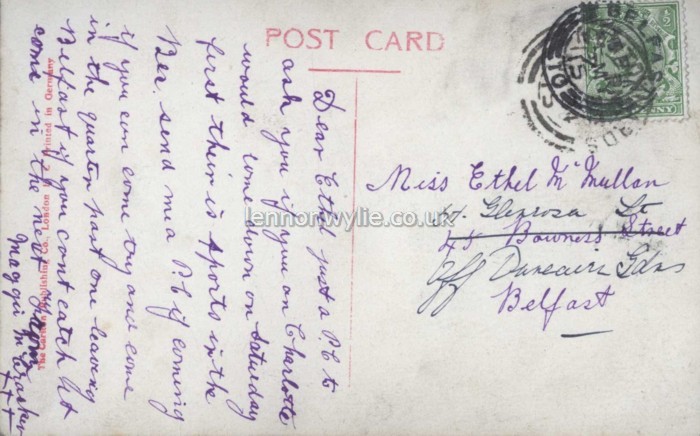 POST CARD
Dear Ethel just a P.C to
ask you if you on Charlotte
would come down on Saturday
first their is sports in the
Rec. send me a P.C if coming
if you can come try and come
in the quarter past one leaving
Belfast if you cant catch it
come in the next
Maggie
+++
The Carlton Publishing Co., London Printed in Germany
BELFAST
Miss Ethel McMullan
Glenrosa St
45 Bowness Street
off Duncairn Gdns
Belfast
lennonwylie.co.uk